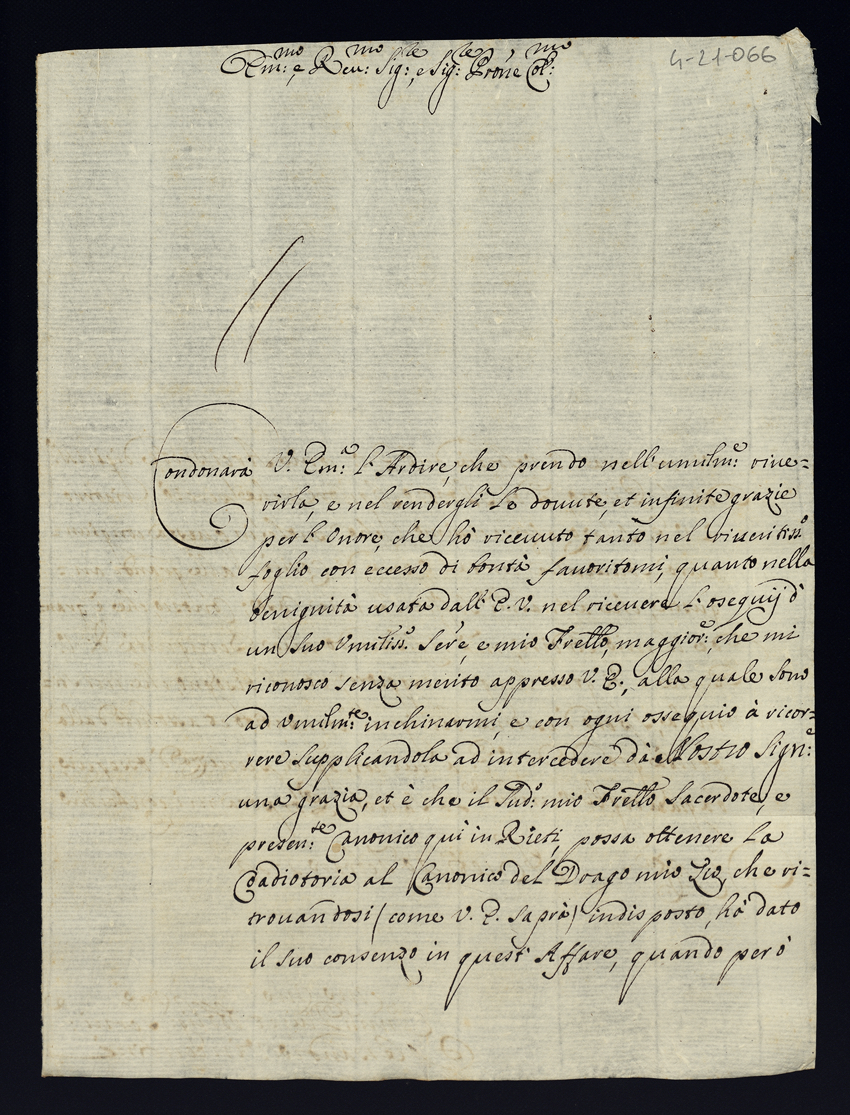 4-21-066
Em:mo e Reu:mo Sig:re, e Sig:re Prōne Col:mo
Condonarà V. Em:a l'Ardire, che prendo nell'umilm:e riue=
rirla, e nel rendergli le douute, et infinite grazie
per l'Onore, che hò riceuuto tanto nel riueritiss:o
foglio con eccesso di bontà fauoritomi, quanto nella
benignità usata dall'E.V. nel riceuere l'osequij d'
un suo Vmiliss:o Ser.e, e mio Frello, maggior:e, che mi
riconosco senza merito appresso V.E., alla quale sono
ad Vmilm:te inchinarmi, e con ogni ossequio à ricor=
rere supplicandola ad intercedere dà Nostro Sign:e
una grazia, et è che il Sud:o mio Frello Sacerdote, e
presen:te Canonico quì in Rieti, possa ottenere la
Coadiotoria al Canonico del Drago mio Zio, che ri=
trouandosi (come V.E. saprà) indisposto, hà dato
il suo consenzo in quest'Affare, quando però